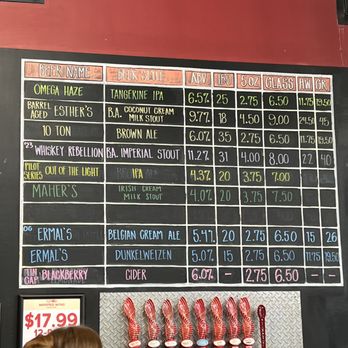 BEER NAME BEER STYLE ABV IBU 5 OZ GLASS HW GR
OMEGA HAZE TANGERINE IPA 6.5% 25 2.75 6.50 11.75 19.50
BARREL AGED ESTHER'S B.A. COCONUT CREAM MILK STOUT 9.7% 18 4.50 9.00 24.50 45
10 TON BROWN ALE 6.0% 35 2.75 6.50 11.75 19.50
'23 WHISKEY REBELLION B.A. IMPERIAL STOUT 11.2% 31 4.00 8.00 22 40
PILOT SERIES OUT OF THE LIGHT IPA 4.3% 20 3.75 7.00
MAHER'S IRISH CREAM MILK STOUT 4.0% 20 3.75 7.50
OG ERMAL'S BELGIAN CREAM ALE 5.4% 20 2.75 6.50 15 26
ERMAL'S DUNKELWEIZEN 5.0% 15 2.75 6.50 11.75 19.50
TIN CAP BLACKBERRY CIDER 6.0% - 2.75 6.50 - -
$17.99